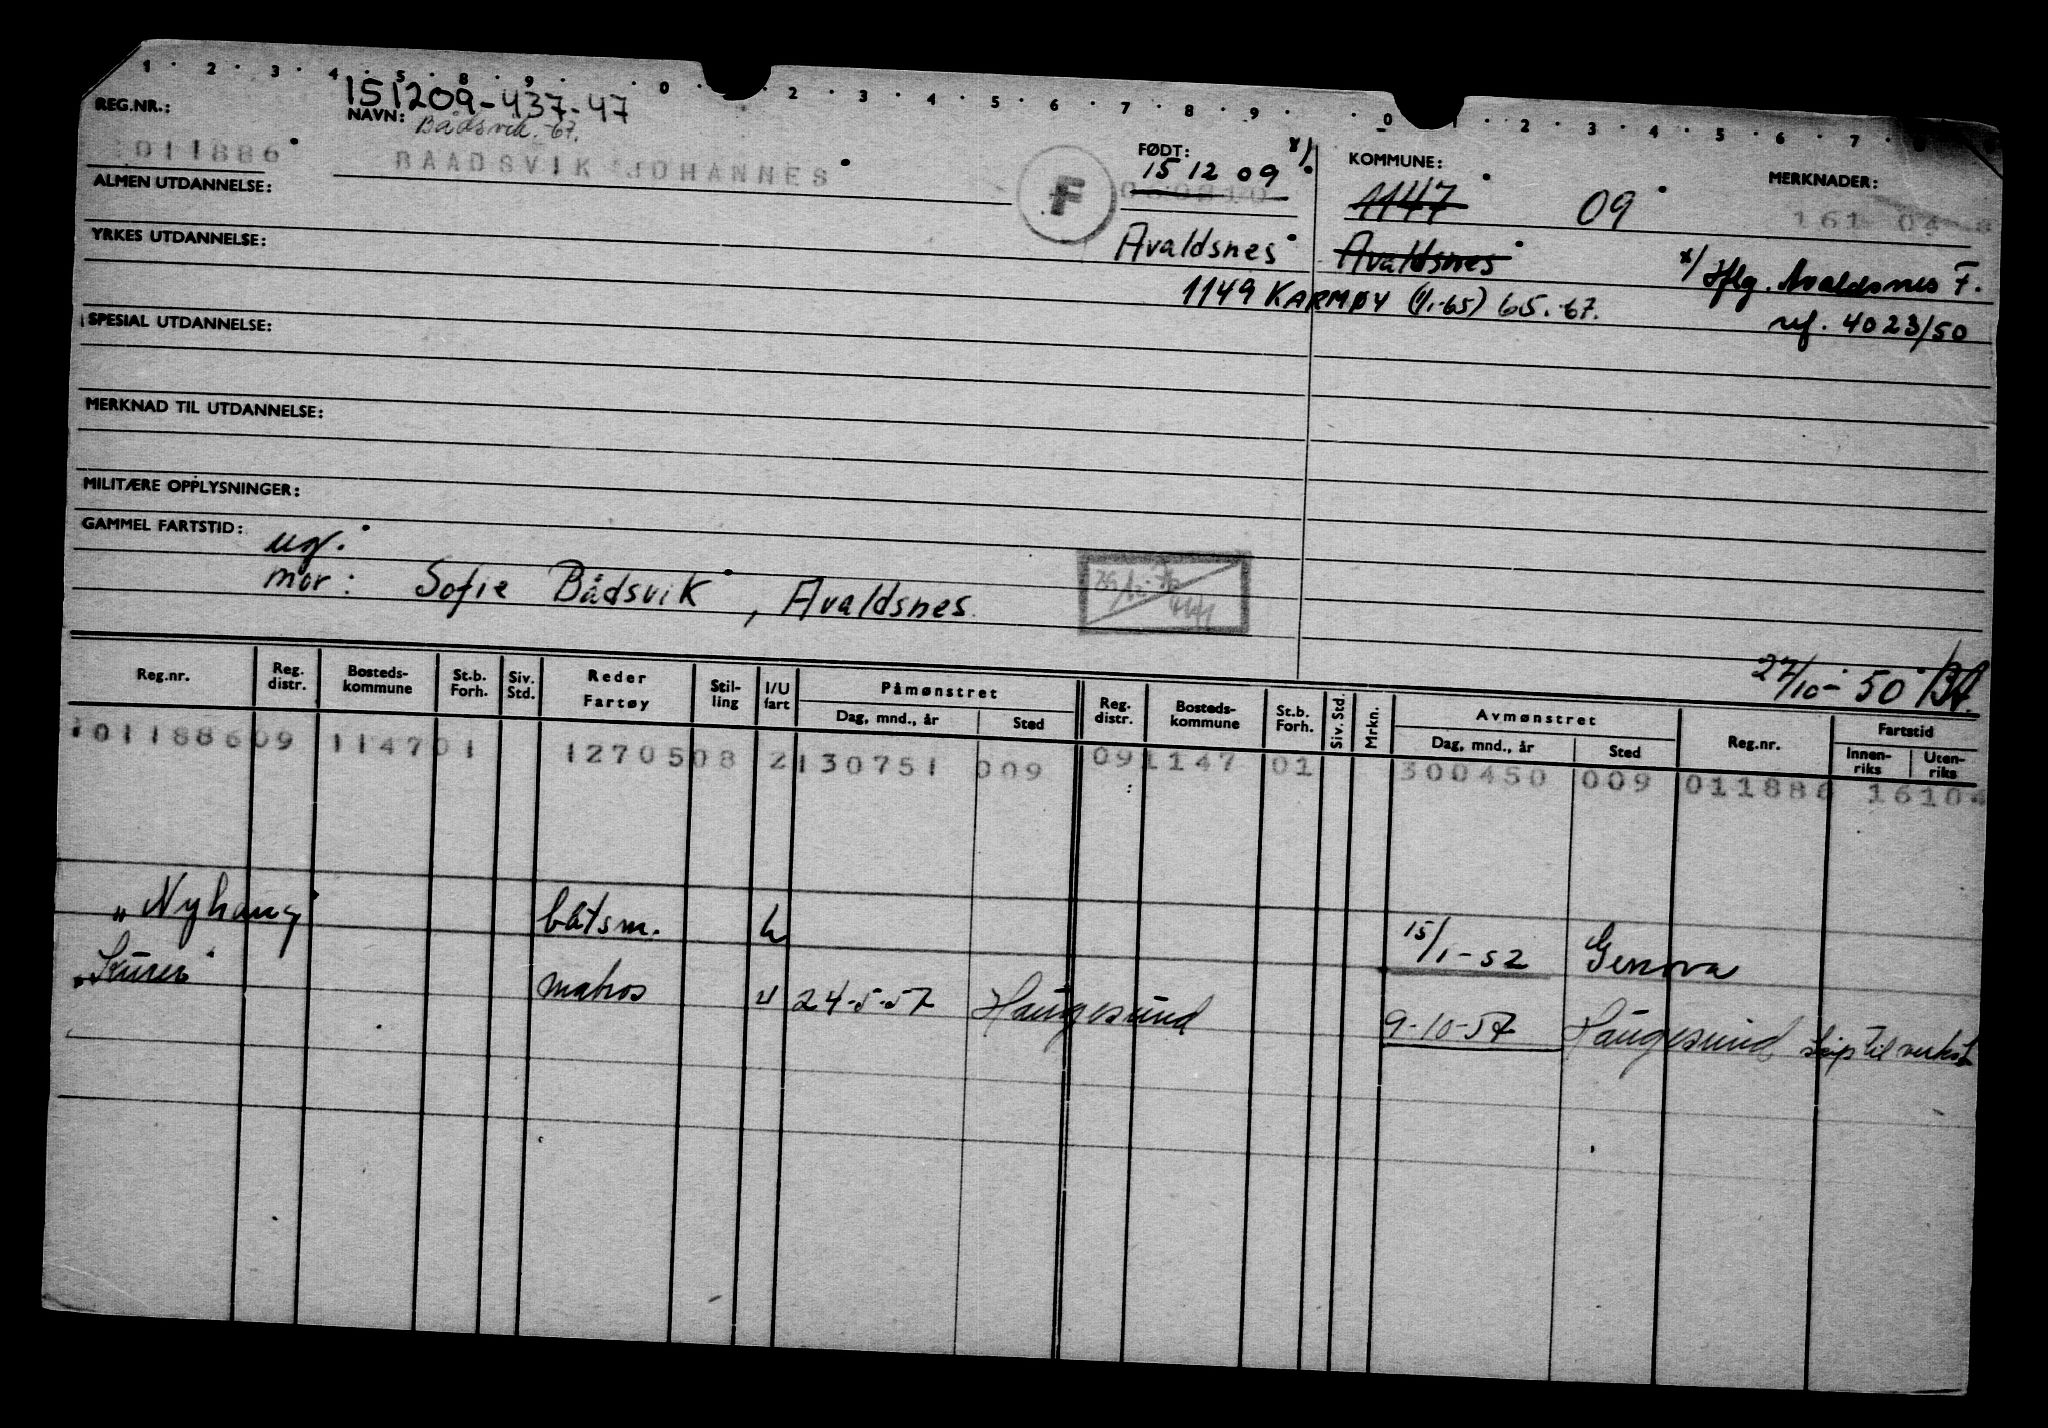 1 . 2 . 3 . 4 . 5 . 8 . 9 . . 0 . 2 . 3 . 4 . 5 . 6 . 7 . 8 . 9 . . 0 1 . 2 . 3 . 4 . 5 . 6 . 7 .
REG.NR.:
151209-437-47
NAVN:
Bådsvik -67.
011886
BAADSVIK JOHANNES
F
FØDT:
x/
15 12 09
KOMMUNE:
1147
09
MERKNADER:
161 04
ALMEN UTDANNELSE:
YRKES UTDANNELSE:
Avaldsnes
Avaldsnes
x/ Iflg. Avaldsnes F.
1149 KARMØY (1/1-65) 65.-67.
ref. 4023/50
SPESIAL UTDANNELSE:
MERKNAD TIL UTDANNELSE:
MILITÆRE OPPLYSNINGER:
GAMMEL FARTSTID:
ug.
mor: Sofie Bådsvik, Avaldsnes.
27/10-50
Reg.nr.
Reg. distr.
Bosteds-kommune
St.b. Forh.
Siv. Std.
Reder Fartøy
Stil-ling
I/U fart
Påmønstret
Dag, mnd., år
Sted
Reg. distr.
Bosteds-kommune
St.b. Forh.
Siv. Std.
Mrkn.
Avmønstret
Dag, mnd., år
Sted
Reg.nr.
Fartstid
Innen-riks
Uten-riks
101188609 114701 1270508 2130751 009 091147 01 300450 009 011886 16104
"Nyhaug" båtsm. u 15/1-52 Genova
"Kurer" matros u 24-5-57 Haugesund 9-10-57 Haugesund Skip til verkst